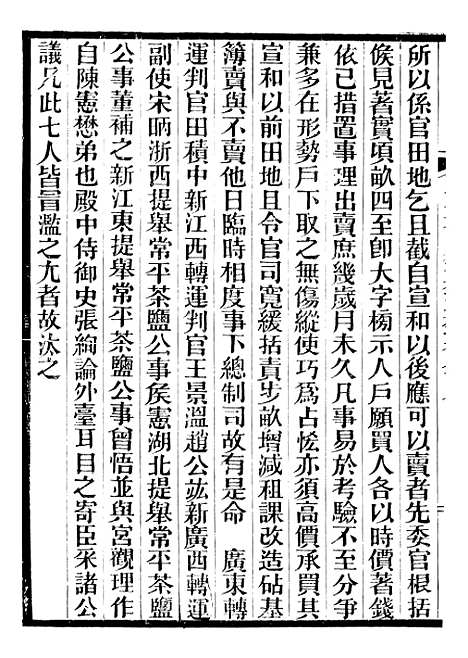 所以係官田地乞且截自宣和以後應可以賣者先委官根括
俟見著實頃畝四至卽大字榜示人戶願買人各以時價著錢
依已措置事理出賣庶幾歲月未久凡事易於考驗不至分爭
兼多在形勢戶下取之無傷縱使巧爲占恡亦須高價承買其
宣和以前田地且令官司寬緩括責步畝增減租課改造砧基
簿賣與不賣他日臨時相度事下總制司故有是命　廣東轉
運判官田積中新江西轉運判官王景溫趙公竑新廣西轉運
副使宋昞浙西提舉常平茶鹽公事矦憲湖北提舉常平茶鹽
公事董補之新江東提舉常平茶鹽公事曾悟並與宮觀理作
自陳憲懋弟也殿中侍御史張絢論外臺耳目之寄臣采諸公
議凡此七人皆冒濫之尤者故汰之